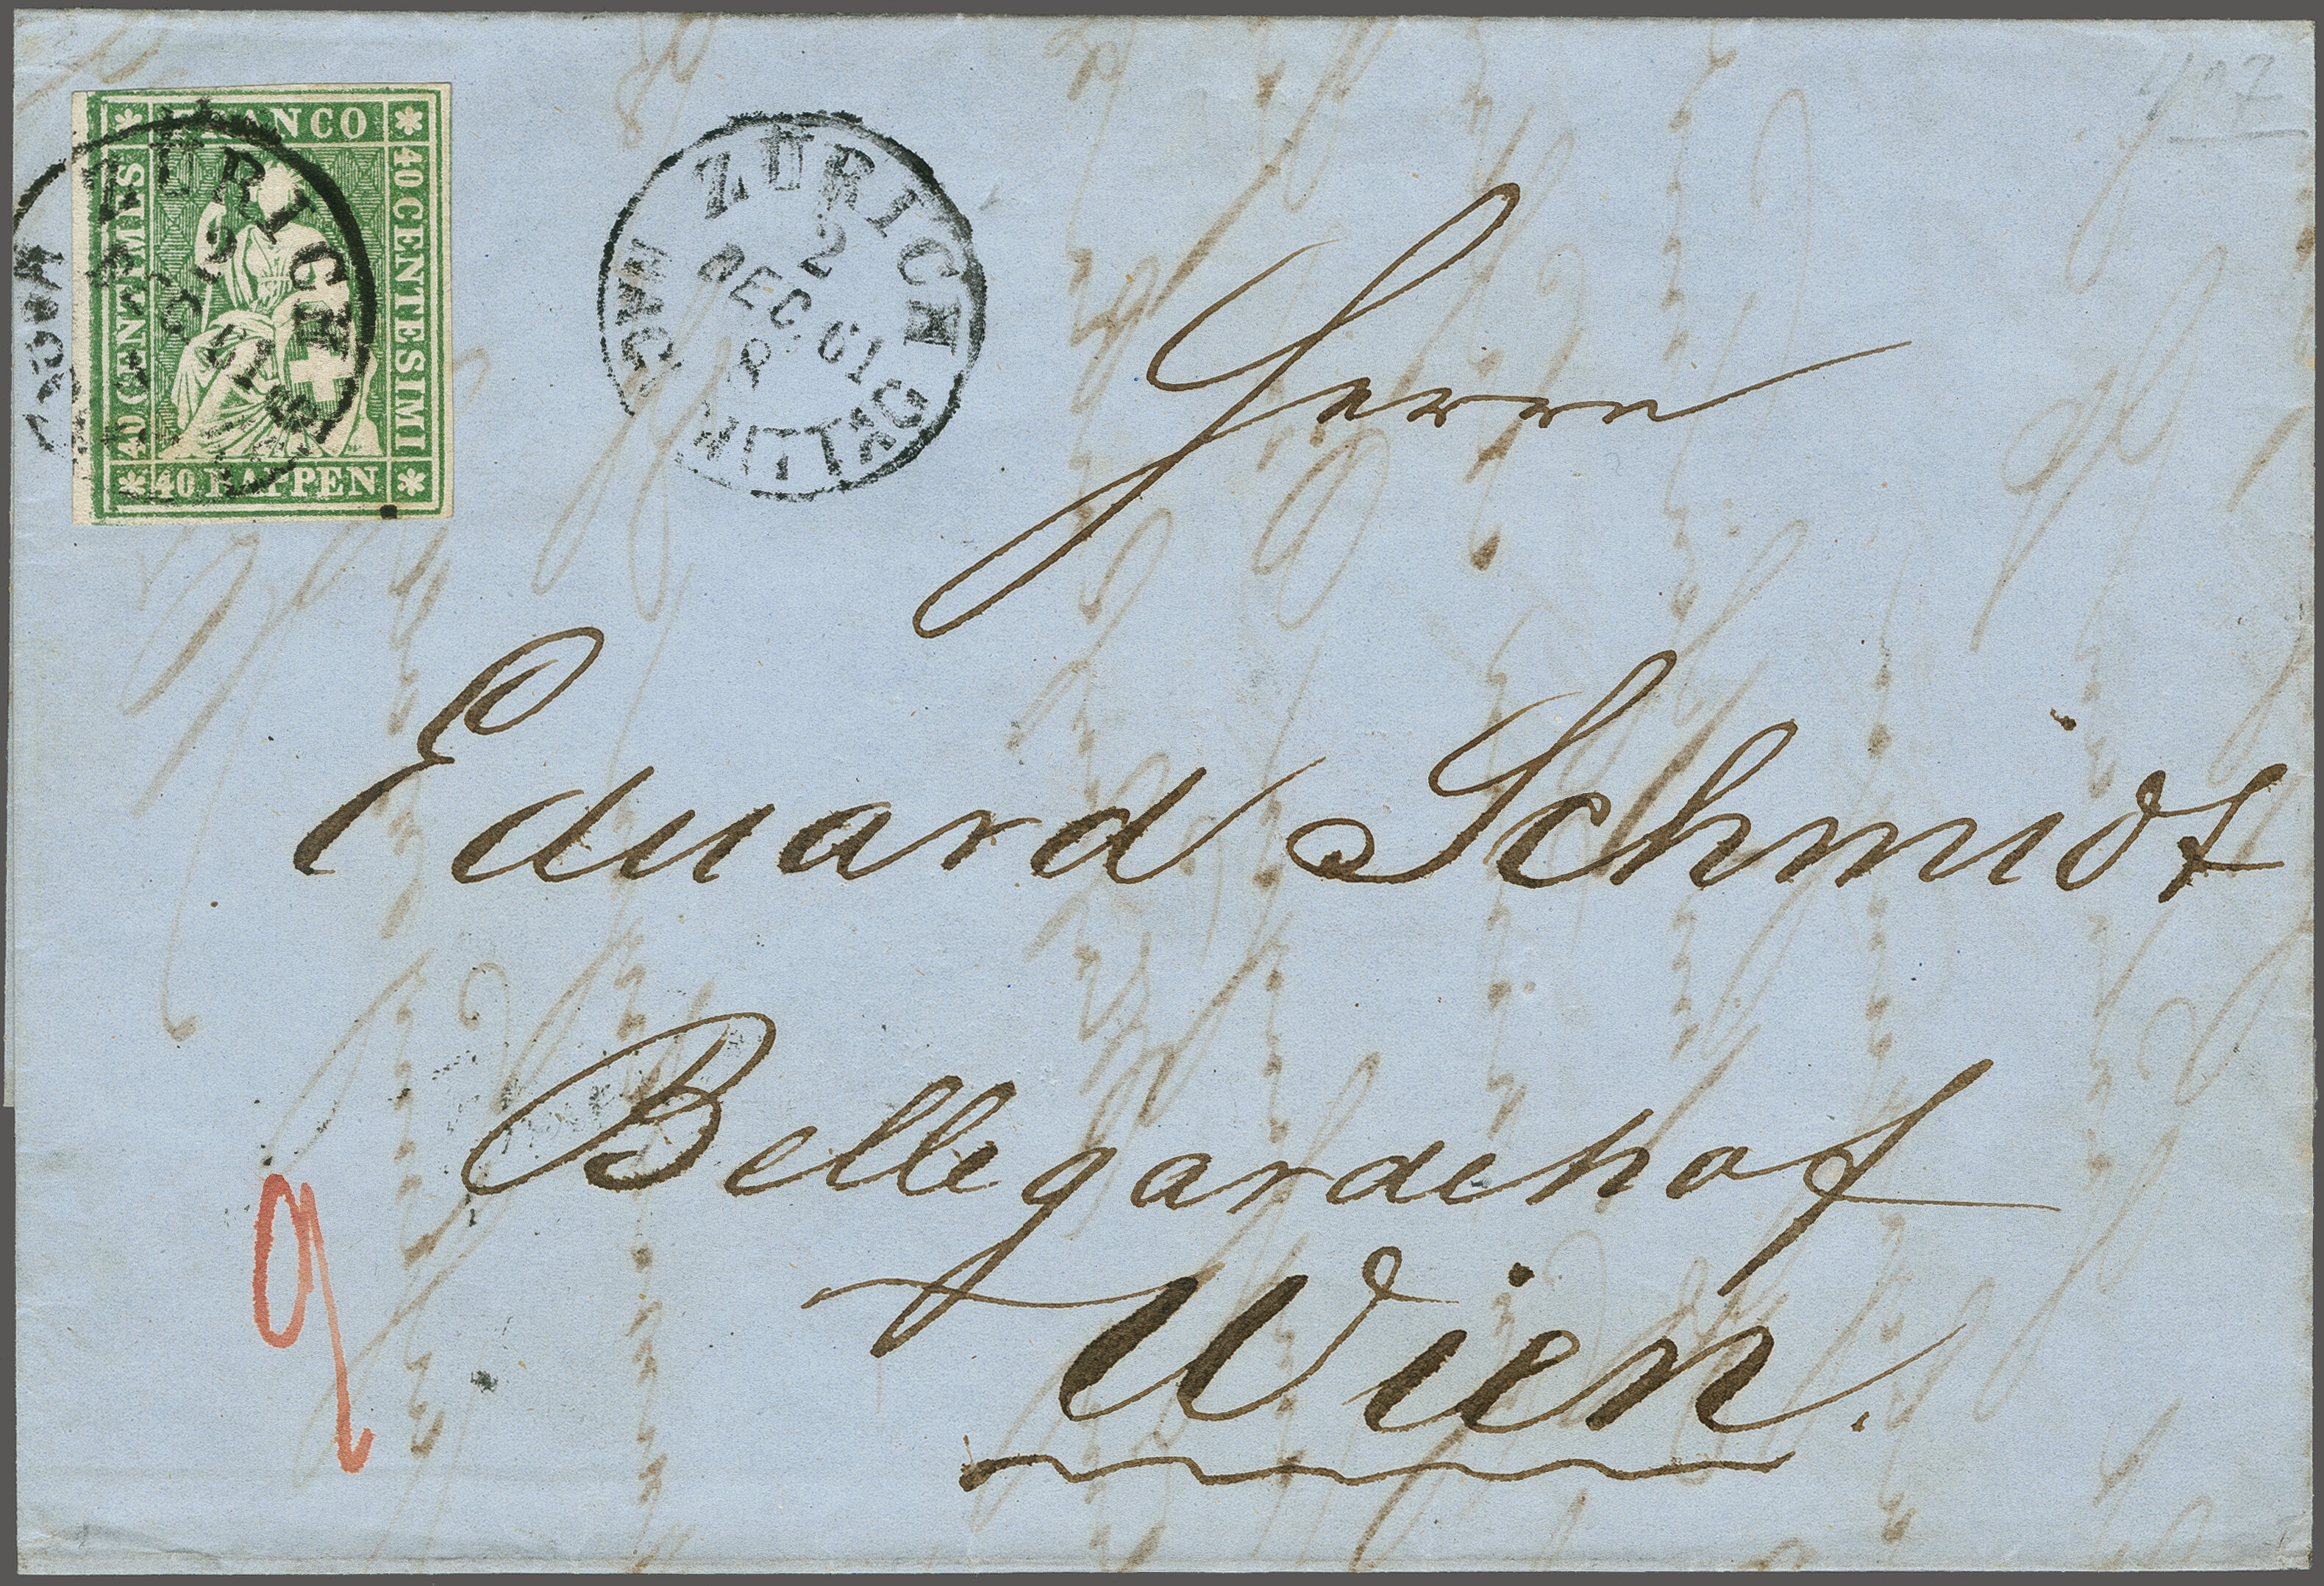 FRANCO
40 CENTIMES
40 CENTESIMI
40 RAPPEN
ZÜRICH
ZÜRICH
2
DEC 61
8
NACHMITTAG
Herrn
Eduard Schmidt
Bellegardehof
Wien.
9